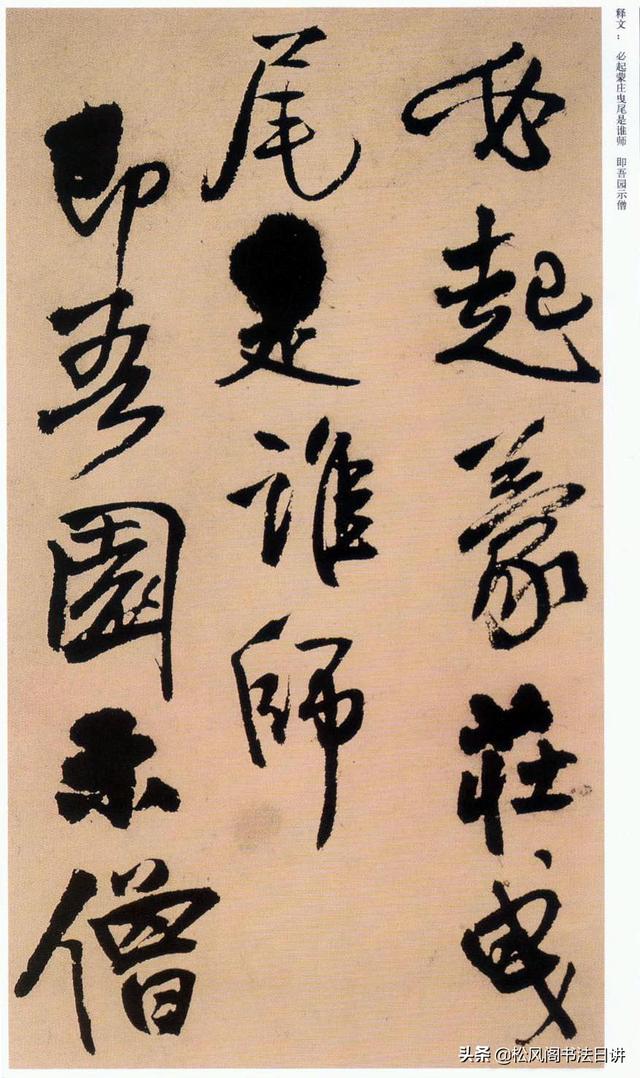 释文： 必起蒙庄曳尾是谁师 即吾园示僧
必起蒙莊曳
尾是誰師
即吾園示僧
头条 @松风阁书法日讲